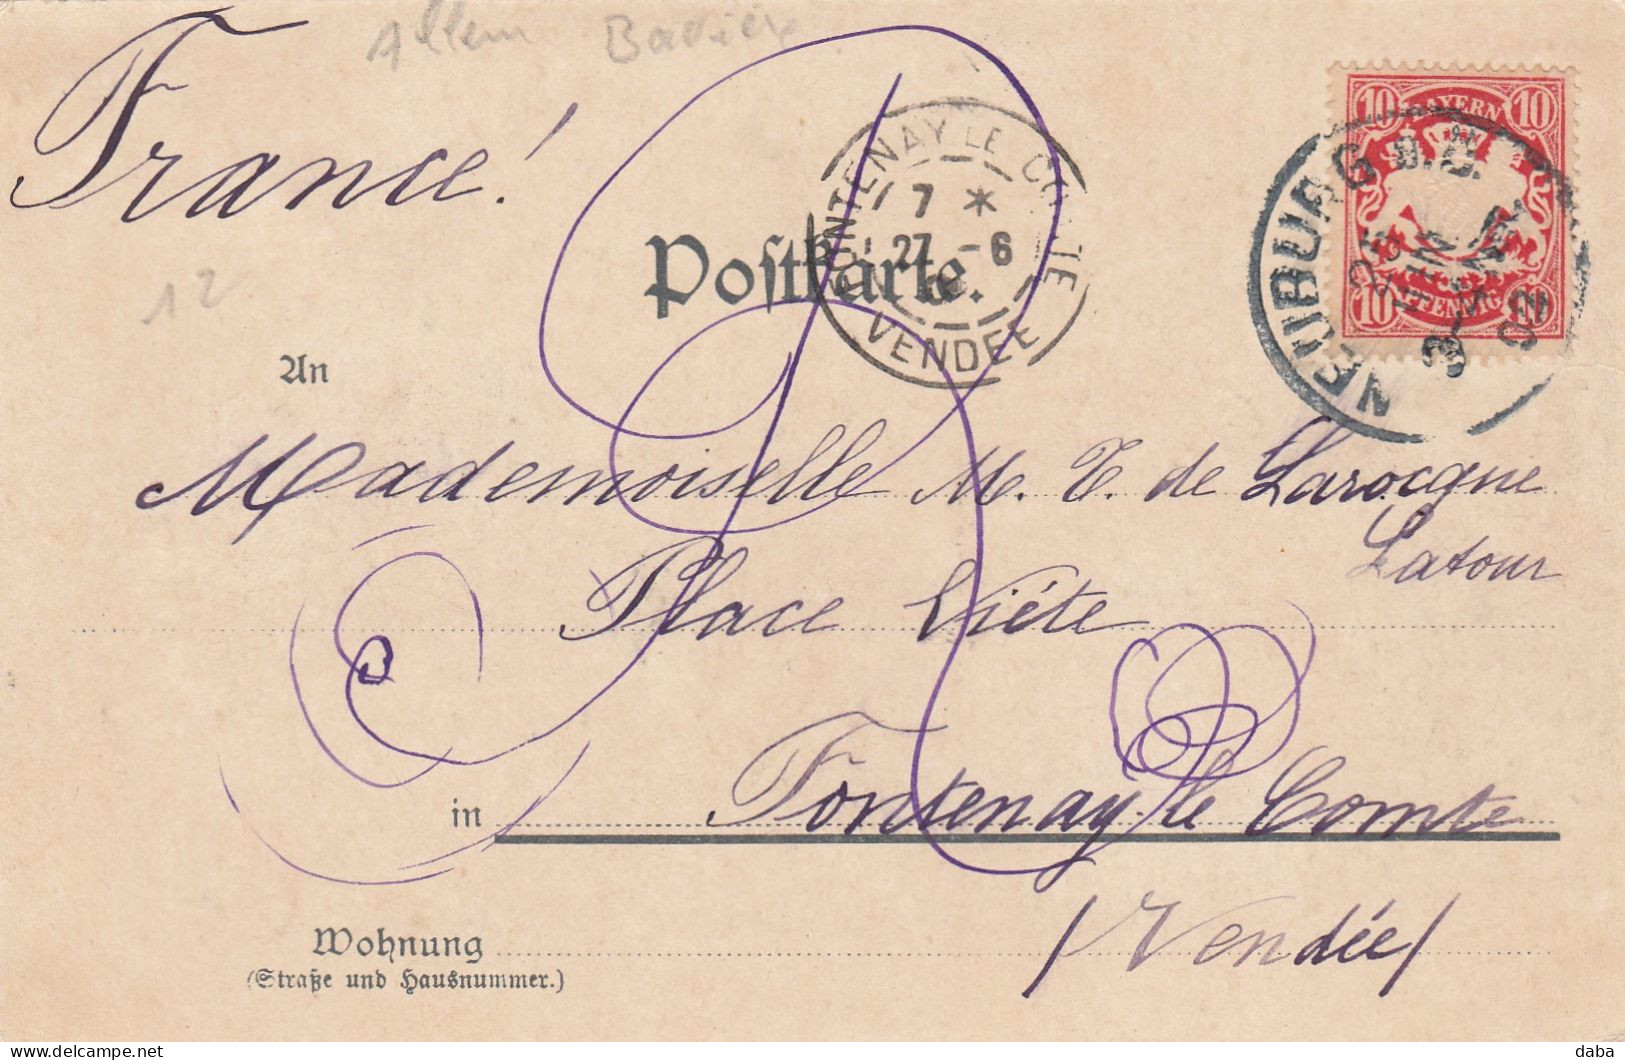 Allem Bavière
France!
10 BAYERN 10
10 PFENNIG 10
NEUBURG A.D.D.
25 JUN
3-4 NM
02
FONTENAY LE COMTE
7 *
27 -6
VENDEE
Postkarte.
12
An
Mademoiselle M. T. de Larocque
Latour
Place Viéte
in Fontenay-le Comte
/Vendée/
Wohnung
(Straße und Hausnummer.)
daba
delcampe.net